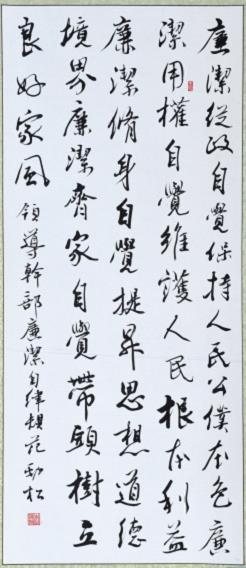 廉潔從政自覺保持人民公僕本色廉
潔用權自覺維護人民根本利益
廉潔脩身自覺提昇思想道德
境界廉潔齊家自覺帶頭樹立
良好家風
領導幹部廉潔自律規范勁松